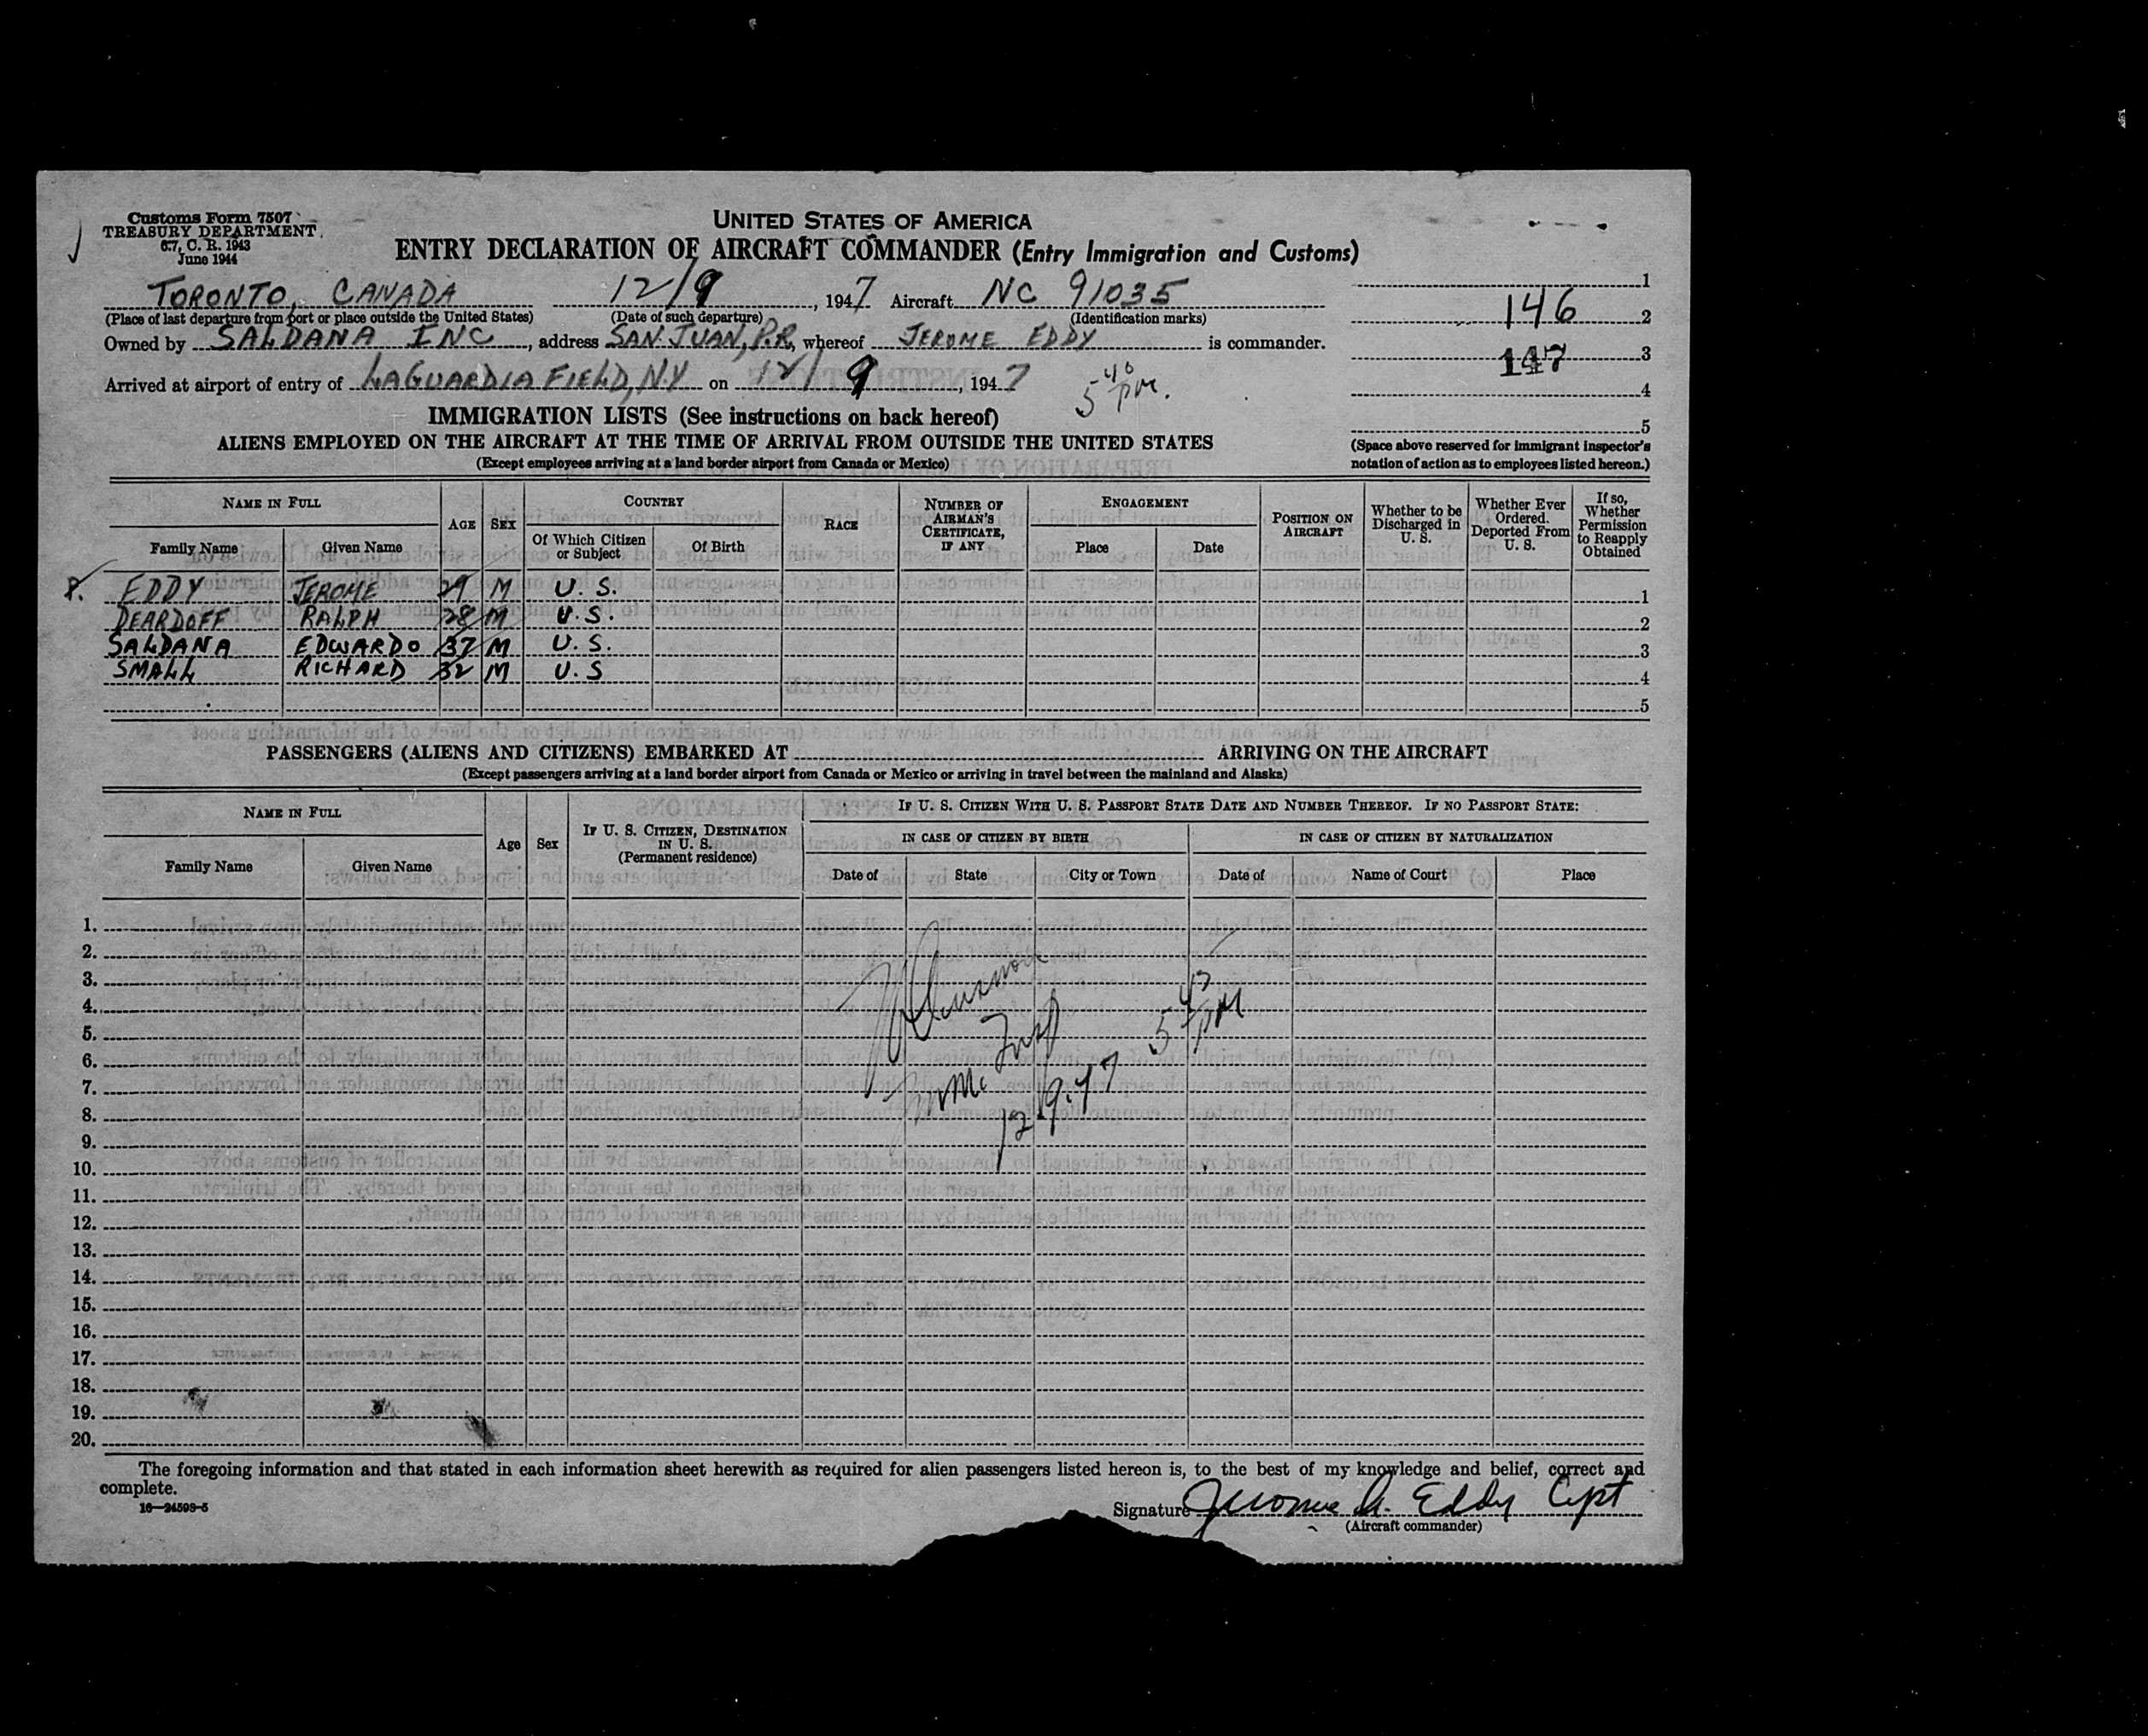 Customs Form 7507
TREASURY DEPARTMENT
6.7, C. R. 1943
June 1944
UNITED STATES OF AMERICA
ENTRY DECLARATION OF AIRCRAFT COMMANDER (Entry Immigration and Customs)
TORONTO, CANADA 12/9, 1947 Aircraft NC 91035
(Place of last departure from port or place outside the United States) (Date of such departure) (Identification marks)
Owned by SALDANA INC, address SAN JUAN, P.R, whereof JEROME EDDY is commander.
Arrived at airport of entry of LAGUARDIA FIELD, N.Y on 12/9, 1947
5 40 PM.
1
146 2
147 3
4
5
(Space above reserved for immigrant inspector's
notation of action as to employees listed hereon.)
IMMIGRATION LISTS (See instructions on back hereof)
ALIENS EMPLOYED ON THE AIRCRAFT AT THE TIME OF ARRIVAL FROM OUTSIDE THE UNITED STATES
(Except employees arriving at a land border airport from Canada or Mexico)
NAME IN FULL AGE SEX COUNTRY RACE NUMBER OF AIRMAN'S CERTIFICATE, IF ANY ENGAGEMENT POSITION ON AIRCRAFT Whether to be Discharged in U. S. Whether Ever Ordered Deported From U. S. If so, Whether Permission to Reapply Obtained
Family Name Given Name Of Which Citizen or Subject Of Birth Place Date
EDDY JEROME 29 M U. S. 1
DEARDOFF RALPH 28 M U. S. 2
SALDANA EDWARDO 37 M U. S. 3
SMALL RICHARD 32 M U. S 4
5
PASSENGERS (ALIENS AND CITIZENS) EMBARKED AT ARRIVING ON THE AIRCRAFT
(Except passengers arriving at a land border airport from Canada or Mexico or arriving in travel between the mainland and Alaska)
NAME IN FULL Age Sex IF U. S. CITIZEN, DESTINATION IN U. S. (Permanent residence) IF U. S. CITIZEN WITH U. S. PASSPORT STATE DATE AND NUMBER THEREOF. IF NO PASSPORT STATE:
IN CASE OF CITIZEN BY BIRTH IN CASE OF CITIZEN BY NATURALIZATION
Family Name Given Name Date of State City or Town Date of Name of Court Place
1.
2.
3.
4.
5.
6.
7.
8.
9.
10.
11.
12.
13.
14.
15.
16.
17.
18.
19.
20.
Imm. Insp
12.9.47
5 45 PM
The foregoing information and that stated in each information sheet herewith as required for alien passengers listed hereon is, to the best of my knowledge and belief, correct and
complete.
16—24598-5
Signature Jerome A. Eddy Cept
(Aircraft commander)